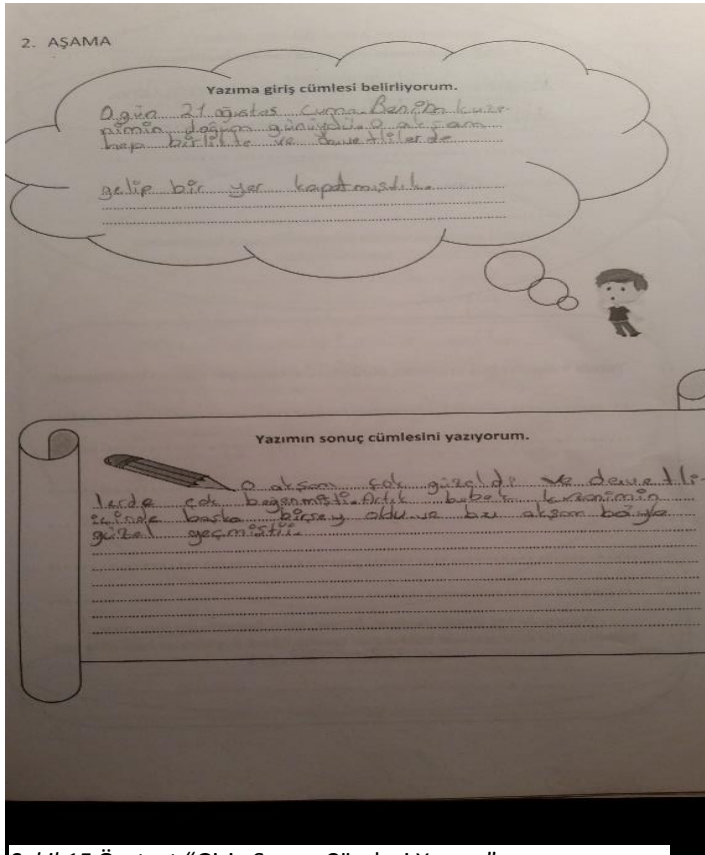 2. AŞAMA
Yazıma giriş cümlesi belirliyorum.
O gün 21 ağustos cuma. Benim kuze-
nimin doğum günüydü. O akşam
hep birlikte ve davetlilerde
gelip bir yer kapatmıştık.
Yazımın sonuç cümlesini yazıyorum.
O akşam çok güzeldi ve davetli-
lerde çok beğenmişti. Artık bebek kuzenimin
içinde başka birşey oldu ve bu akşam böyle
güzel geçmiştii.